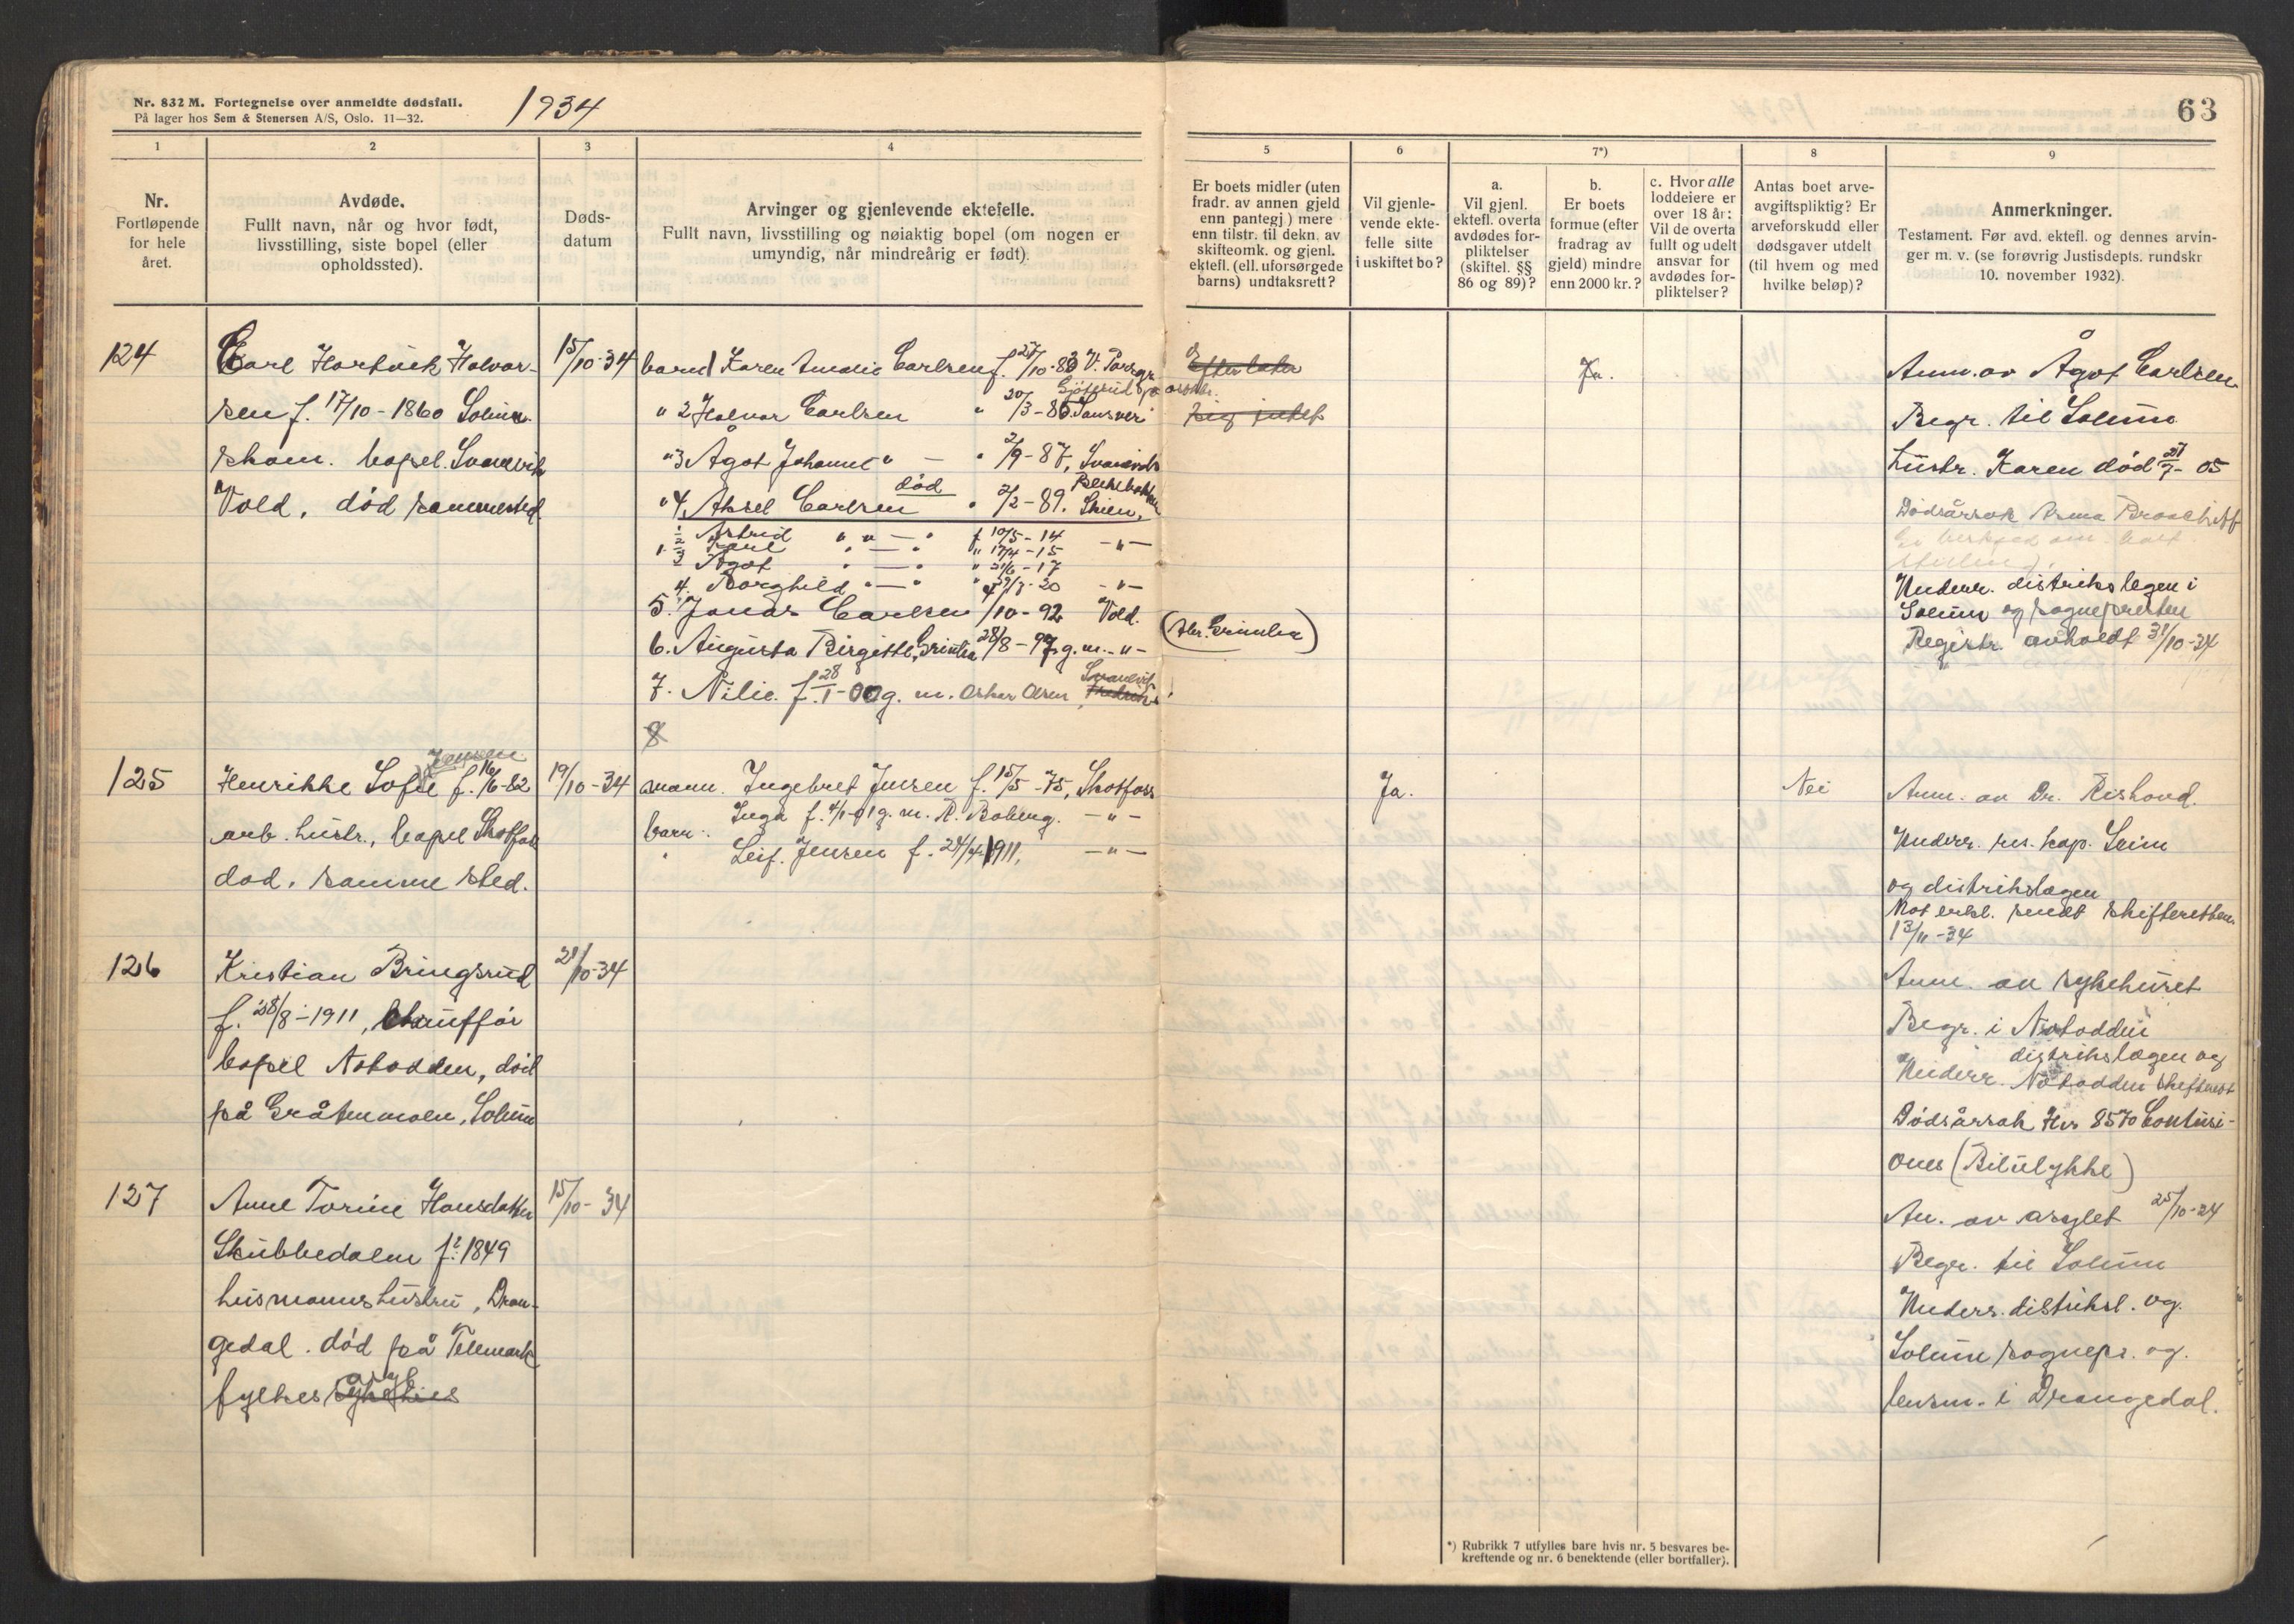 Nr. 832 M. Fortegnelse over anmeldte dødsfall.
På lager hos Sem & Stenersen A/S, Oslo. 11—32.
1934
63
1
2
3
4
5
6
7*)
8
9
Nr.
Fortløpende
for hele
året.
Avdøde.
Fullt navn, når og hvor født,
livsstilling, siste bopel (eller
opholdssted).
Døds-
datum
Arvinger og gjenlevende ektefelle.
Fullt navn, livsstilling og nøiaktig bopel (om nogen er
umyndig, når mindreårig er født).
Er boets midler (uten
fradr. av annen gjeld
enn pantegj) mere
enn tilstr. til dekn. av
skifteomk. og gjenl.
ektefl. (ell. uforsørgede
barns) undtaksrett?
Vil gjenle-
vende ekte-
felle sitte
i uskiftet bo?
a.
Vil gjenl.
ektefl. overta
avdødes for-
pliktelser
(skiftel. §§
86 og 89)?
b.
Er boets
formue (efter
fradrag av
gjeld) mindre
enn 2000 kr.?
c. Hvor alle
loddeiere er
over 18 år:
Vil de overta
fullt og udelt
ansvar for
avdødes for-
pliktelser?
Antas boet arve-
avgiftspliktig? Er
arveforskudd eller
dødsgaver utdelt
(til hvem og med
hvilke beløp)?
Anmerkninger.
Testament. Før avd. ektefl. og dennes arvin-
ger m. v. (se forøvrig Justisdepts. rundskr
10. november 1932).
124
Carl Hartvik Halvor-
sen f. 17/10-1860 Solum
skom. bopel. Svanvik
Vold, død sammested.
15/10-34
barn 1 Karen Amalie Carlsen f. 27/10-83 V. Porsgr.
" 2 Halvor Carlsen " 20/3-85
" 3 Ågot Johanne " — " 2/9-87,
" 4. Aksel Carlsen død " 2/2-89. Skien,
1 Astrid " " — " f 10/5-14 —"—
2 Karl " — " " 17/4-15
3 Ågot " — " " 21/6-17
4. Borghild " — " 20 —"—
5. Jonas Carlsen /10-92 Vold.
6. Augusta Birgitte Grinlia 28/8-97 g.m. —"—
(Abr. Grinlia)
7. Nilie. f. 28/1-00 g. m. Oskar Olsen,
8
Efterlater
sig intet
Ja.
Anm. av Ågot Carlsen
Begr. til Solum
hustr. Karen død 05
Dødsårsak
Underr. distriktslegen i
Solum og sognepresten
Registr. avholdt 31/10-34
125
Henrikke Sofie Jensen f. 16/6-82
arb. hustr., bopel Skotfoss
død. samme sted.
19/10-34
mann. Ingebret Jensen f. 15/5-75, Skotfoss
barn: Inga f. 4/1-01 g. m. R. Boberg. —"—
" Leif. Jensen f. 24/4 1911, —"—
Ja.
Nei
Anm. av Dr. Rishovd.
Underr. res. kap. Seim
og distriktslægen
Mot erkl. sendt skifteretten
13/11-34
126
Kristian Bringsrud
f. 28/8-1911, Chauffør
bopel Notodden, død
på Gråtenmoen, Solum
21/10-34
Anm. av sykehuset
Begr. i Notodden
Underr. distriktslægen og
Notodden skifterett
Dødsårsak Hvs 8570 Contusi-
ones (Bilulykke)
127
Anne Torine Hansdatter
Skubbedalen f. 1849
husmannshustru, Dran-
gedal. død på Telemark
fylkes asyl
15/10-34
An. av asylet 25/10-34
Begr. til Solum
Underr. distriktsl. og.
Solum sognepr. og.
lensm. i Drangedal.
*) Rubrikk 7 utfylles bare hvis nr. 5 besvares be-
kreftende og nr. 6 benektende (eller bortfaller).